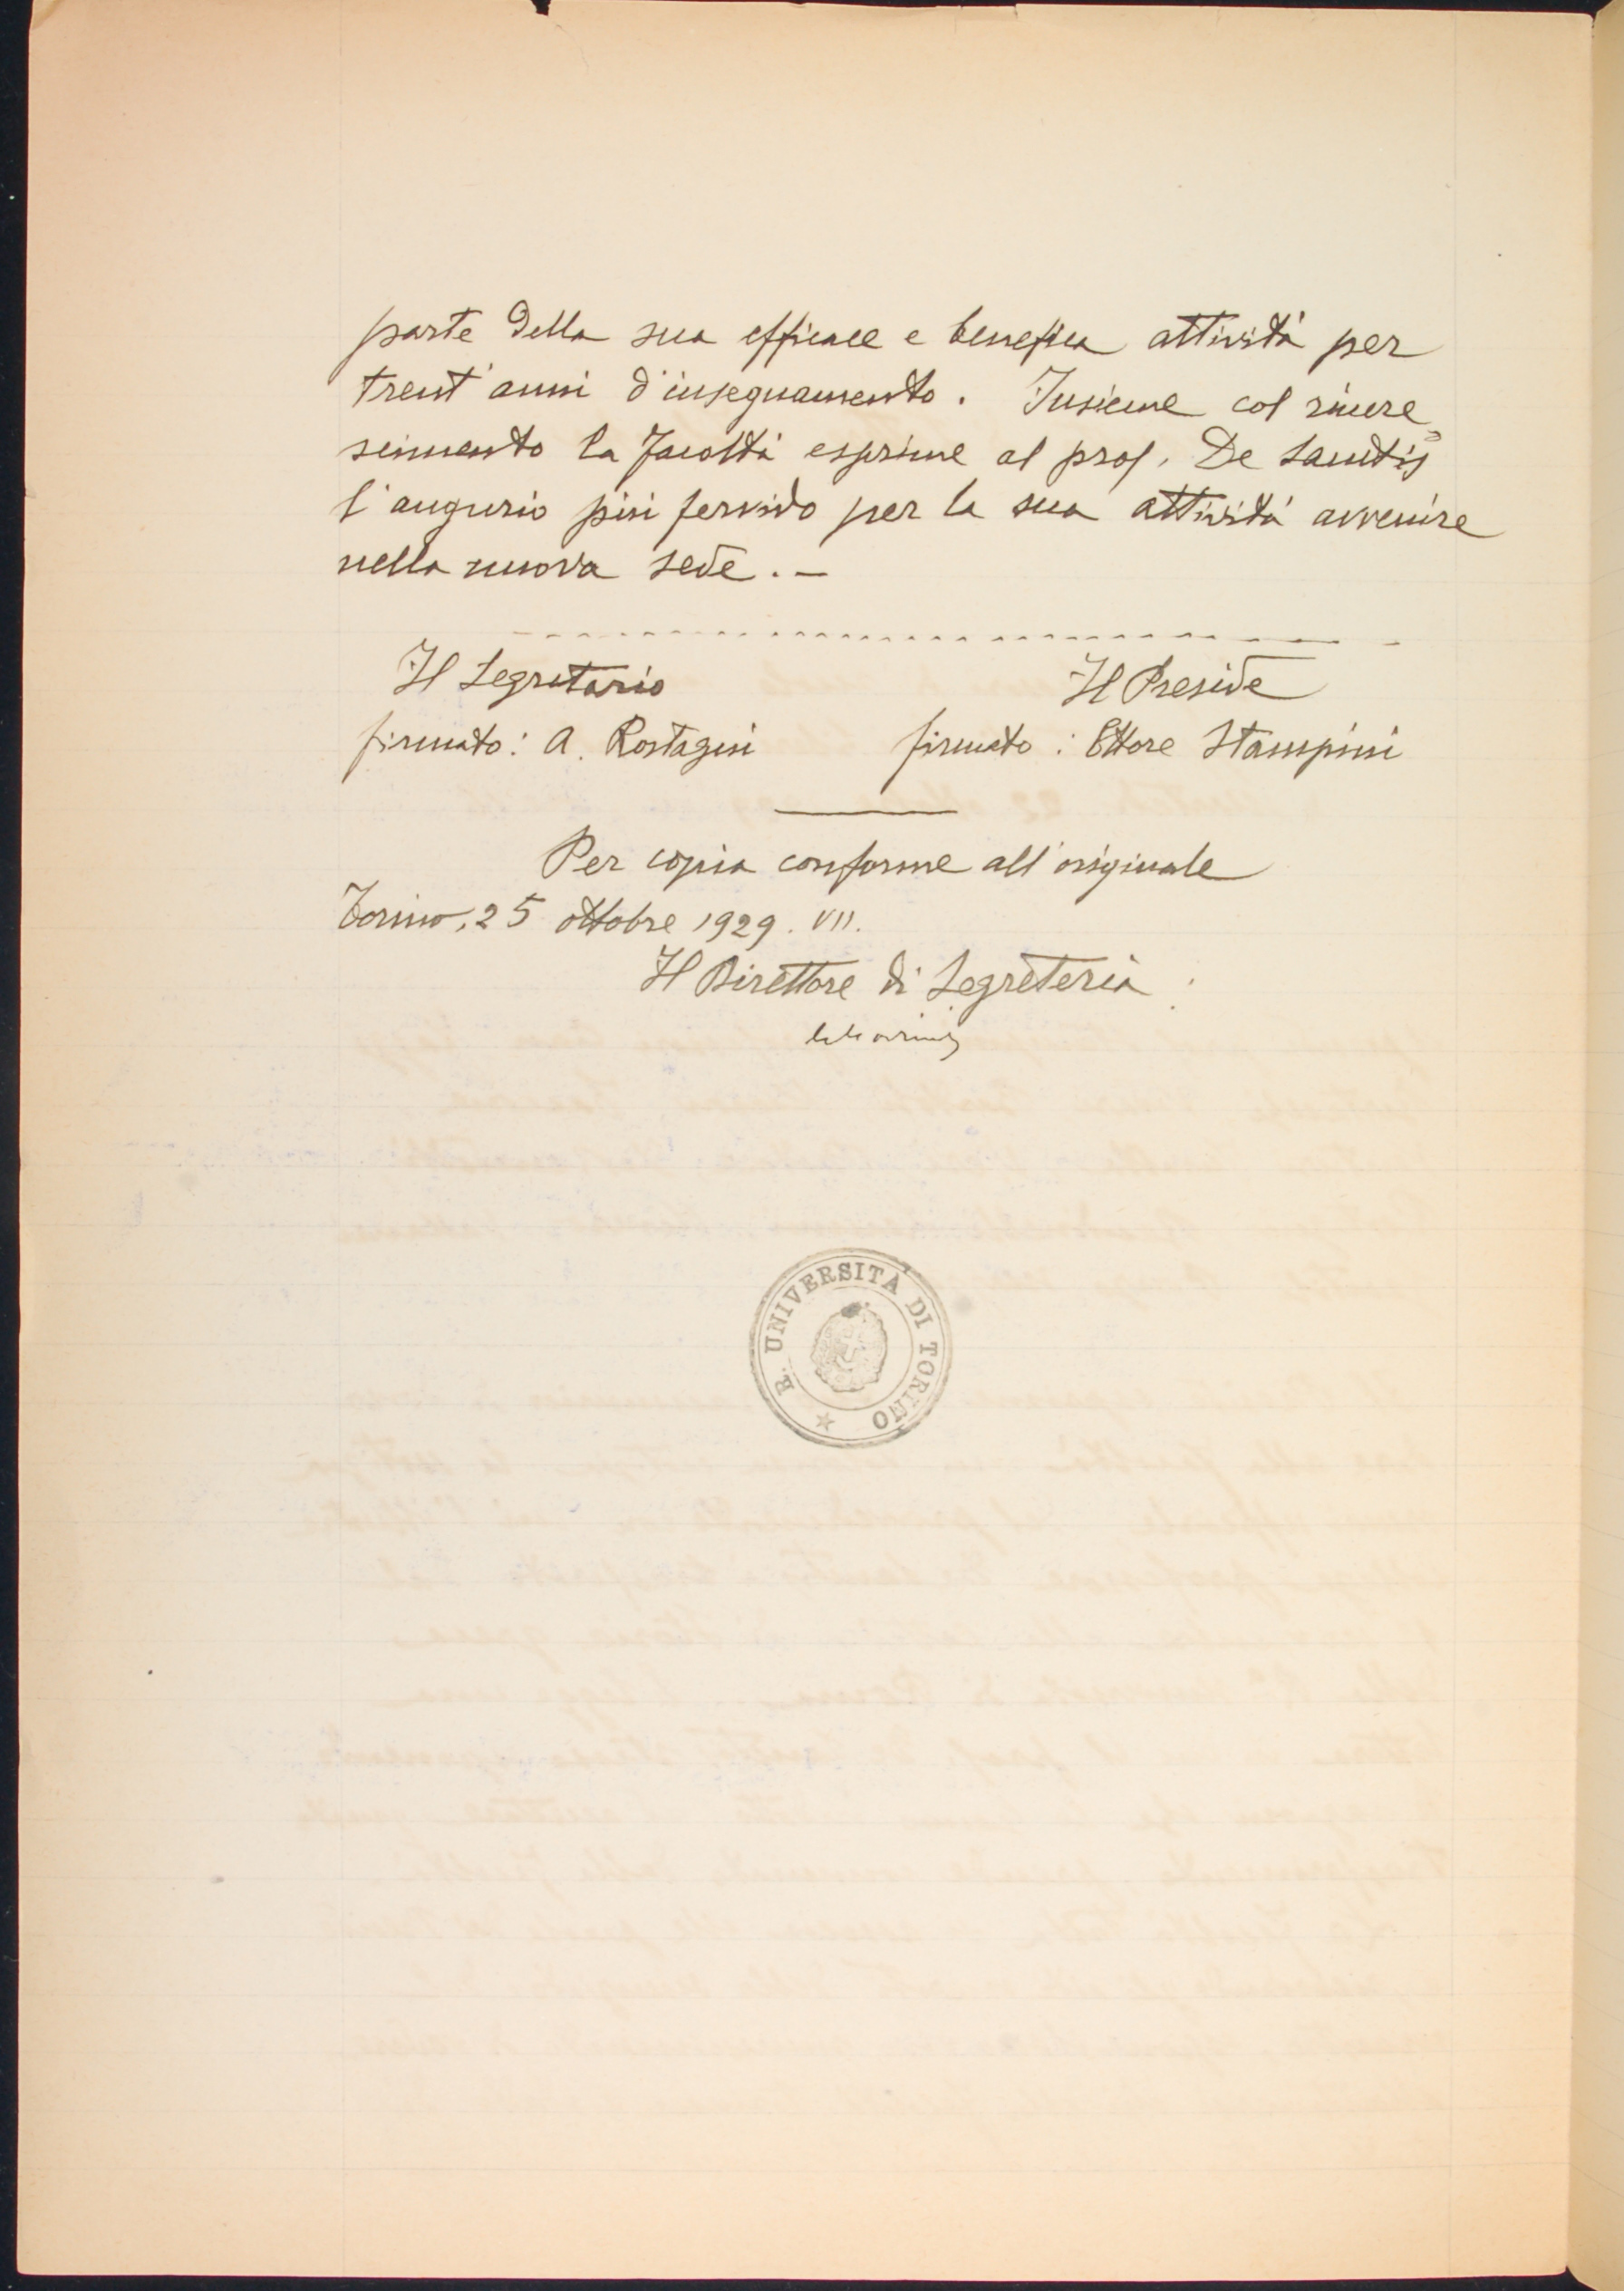 parte della sua efficace e benefica attività per
trent'anni d'insegnamento. Insieme col rincre=
scimento la Facoltà esprime al prof. De Sanctis
l'augurio più fervido per la sua attività avvenire
nella nuova sede. –
Il Segretario Il Preside
firmato: A. Rostagni firmato: Ettore Stampini
Per copia conforme all'originale
Torino, 25 ottobre 1929. VII.
Il Direttore di Segreteria
R. UNIVERSITA DI TORINO